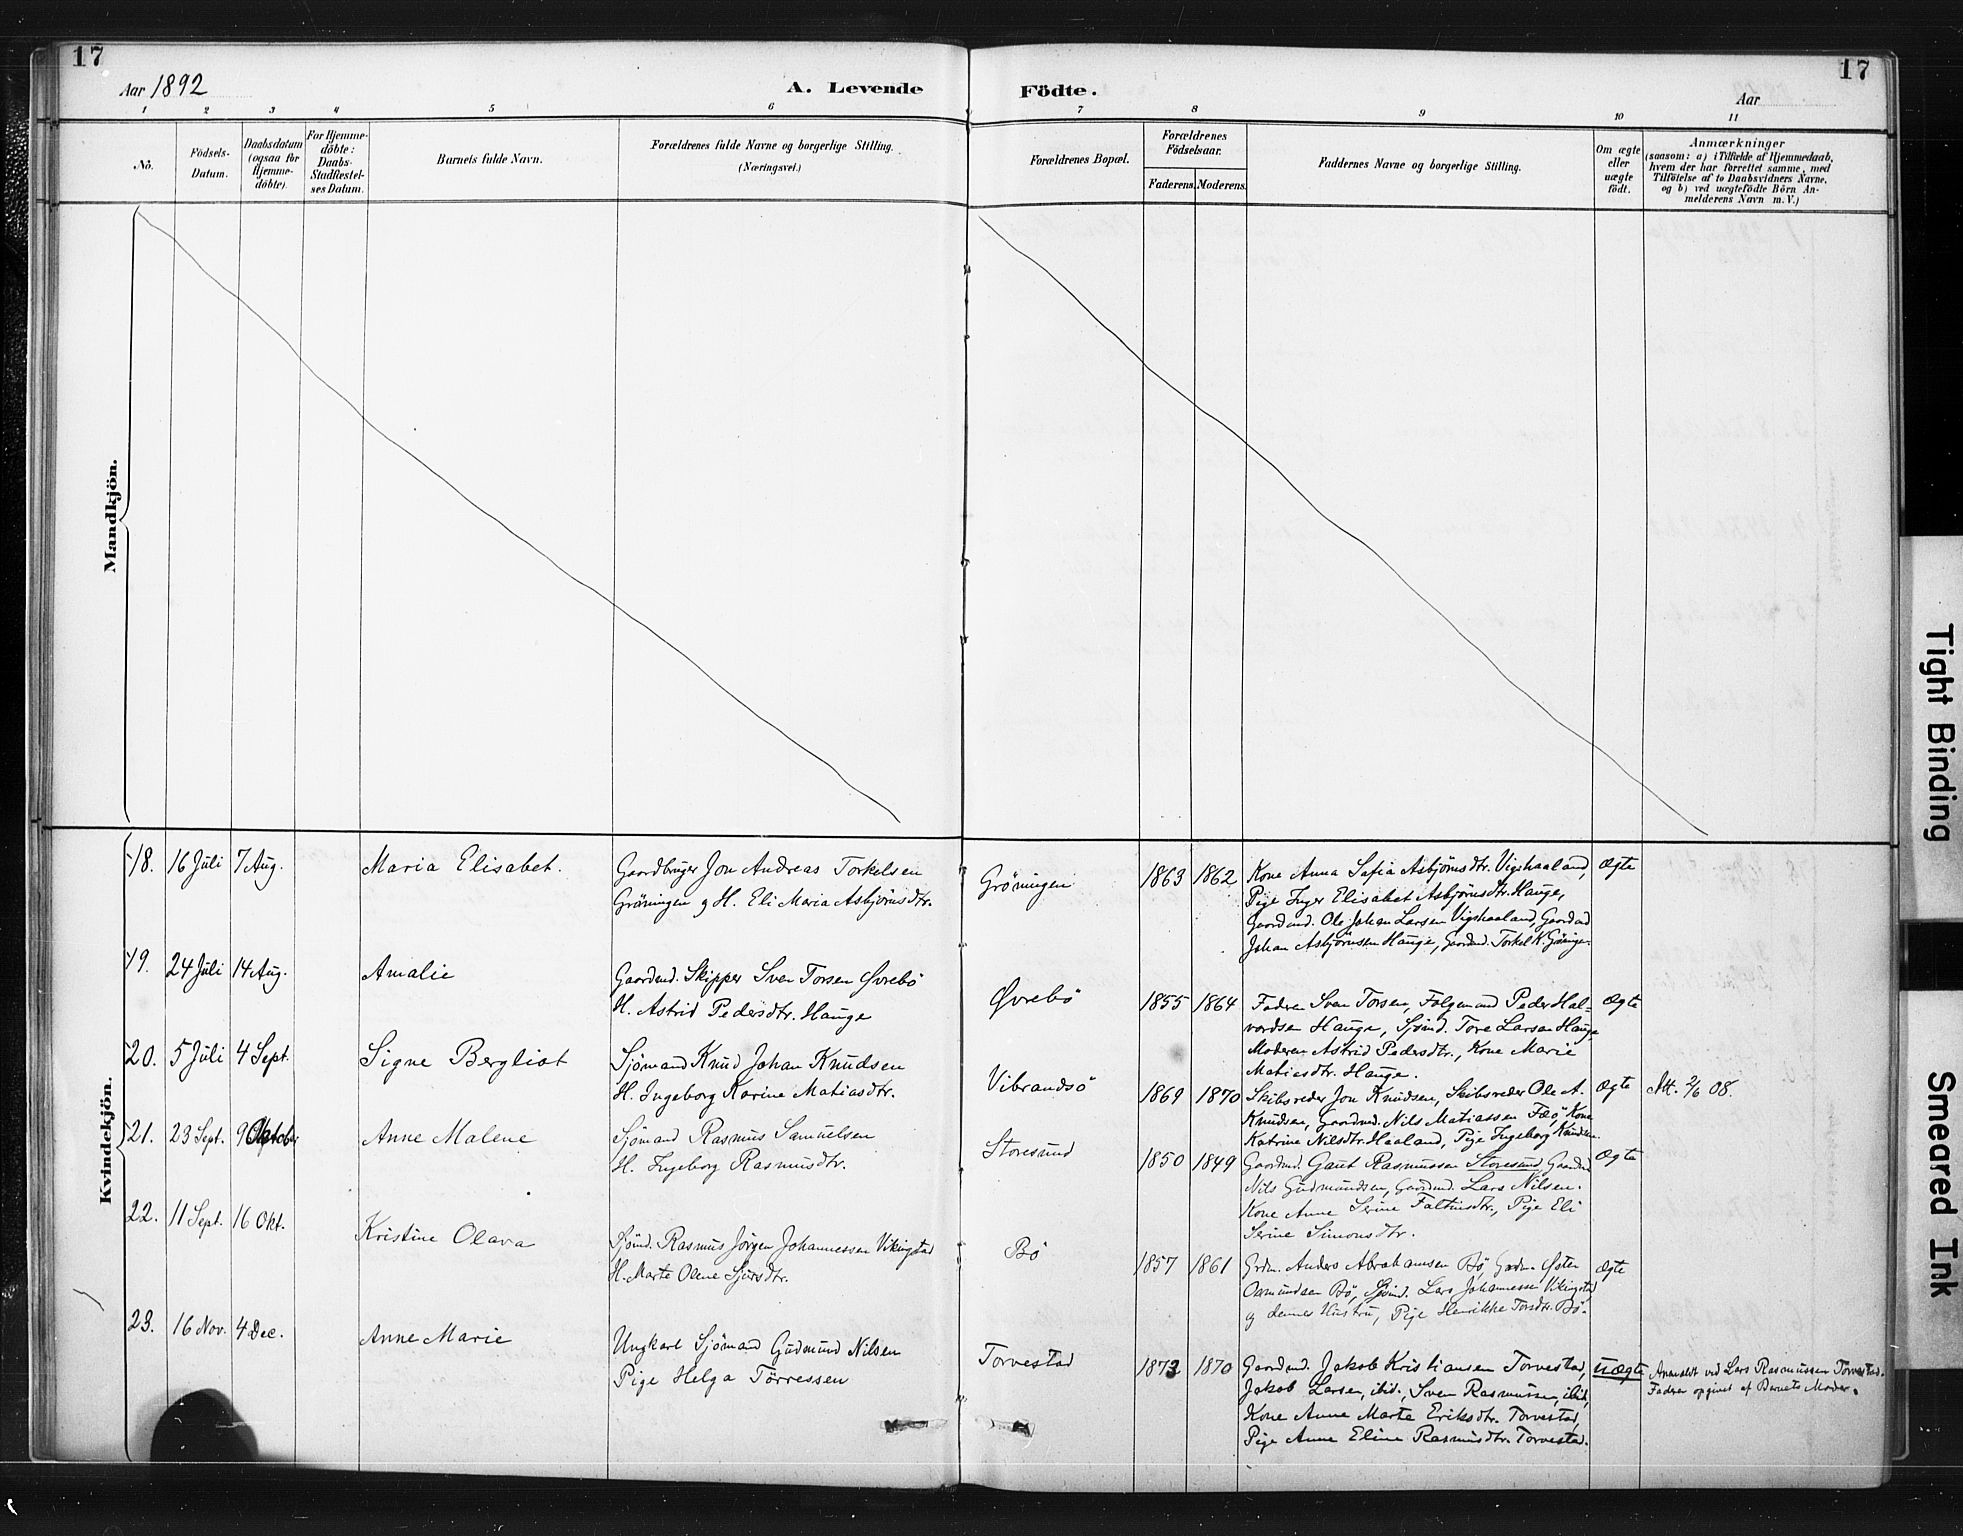 17
17
Aar 1892
A. Levende Födte.
Aar
1 2 3 4 5 6 7 8 9 10 11
No.
Födsels-
Datum.
Daabsdatum
(ogsaa for
Hjemme-
döbte).
For Hjemme-
döbte:
Daabs-
Stadfæstel-
ses Datum.
Barnets fulde Navn.
Forældrenes fulde Navne og borgerlige Stilling.
(Næringsvei.)
Forældrenes Bopæl.
Forældrenes
Födselsaar.
Faderens. Moderens.
Faddernes Navne og borgerlige Stilling.
Om ægte
eller
uægte
födt.
Anmærkninger
(saasom: a) i Tilfælde af Hjemmedaab,
hvem der har forrettet samme, med
Tilföielse af to Daabsvidners Navne,
og b) ved uægtefödte Börn An-
melderens Navn m. V.)
Mandkjön.
Kvindekjön.
18. 16 Juli 7 Aug. Maria Elisabet.
Gaardbruger Jon Andreas Torkelsen
Gröningen g H. Eli Maria Asbjörnsdtr.
Gröningen
1863 1862
Kone Anna Sofia Asbjörnsdtr. Vigshaaland,
Pige Inger Elisabet Asbjörnsdtr. Hauge,
Gaardmd. Ole Johan Larsen Vigshaaland, Gaardmd
Johan Asbjörnsen Hauge, Gaardmd. Torkel K. Gröninge.
Ægte
19. 24 Juli 14 Aug. Amalie
Gaardmd. Skipper Sven Torsen Øvrebö
H. Astrid Pedersdtr. Hauge
Øvrebö
1855 1864
Faderen Sven Torsen, Følgemand Peder Hal-
vordsen Hauge, Sjömd. Tore Larsen Hauge
Moderen Astrid Pedersdtr., Kone Marie
Matiasdtr. Hauge.
Ægte
20. 5 Juli 4 Sept. Signe Bergliot
Sjömand Knud Johan Knudsen
H. Ingeborg Karine Matiasdtr.
Vibrandsö
1869 1870
Skibsreder Jon Knudsen, Skibsreder Ole A.
Knudsen, Gaardmd. Nils Matiassen Fæö, Kone
Katrine Nilsdtr. Haaland, Pige Ingeborg Knudsen.
Ægte
Att. 2/6 08.
21. 23 Sept. 9 Oktober Anne Malene
Sjömand Rasmus Samuelsen
H. Ingeborg Rasmusdtr.
Storesund
1850 1849
Gaardmd. Gaut Rasmussen Storesund, Gaardmd
Nils Gudmundsen, Gaardmd. Lars Nilsen.
Kone Anne Serine Faltinsdtr., Pige Eli
Serine Simonsdtr.
Ægte
22. 11 Sept. 16 Okt. Kristine Olava
Sjömd. Rasmus Jörgen Johannessen Vikingstad
H. Marte Olene Sjursdtr.
Bö
1857 1861
Grdm. Anders Abrahamsen Bö, Grdm. Østen
Osmundsen Bö, Sjömd. Lars Johannessen Vikingstad
og dennes Hustru, Pige Henrikke Torsdtr. Bö.
Ægte
23. 16 Nov. 4 Dec. Anne Marie
Ungkarl Sjömand Gudmund Nilsen
Pige Helga Törressen
Torvestad
1873 1870
Gaardmd. Jakob Kristiansen Torvestad,
Jakob Larsen, ibid., Sven Rasmussen, ibid,
Kone Anne Marte Eriksdtr. Torvestad,
Pige Anne Eline Rasmusdtr. Torvestad.
uægte
Anmeldt ved Lars Rasmussen Torvestad.
Fader opgivet af Barnets Moder.
Tight Binding
Smeared Ink